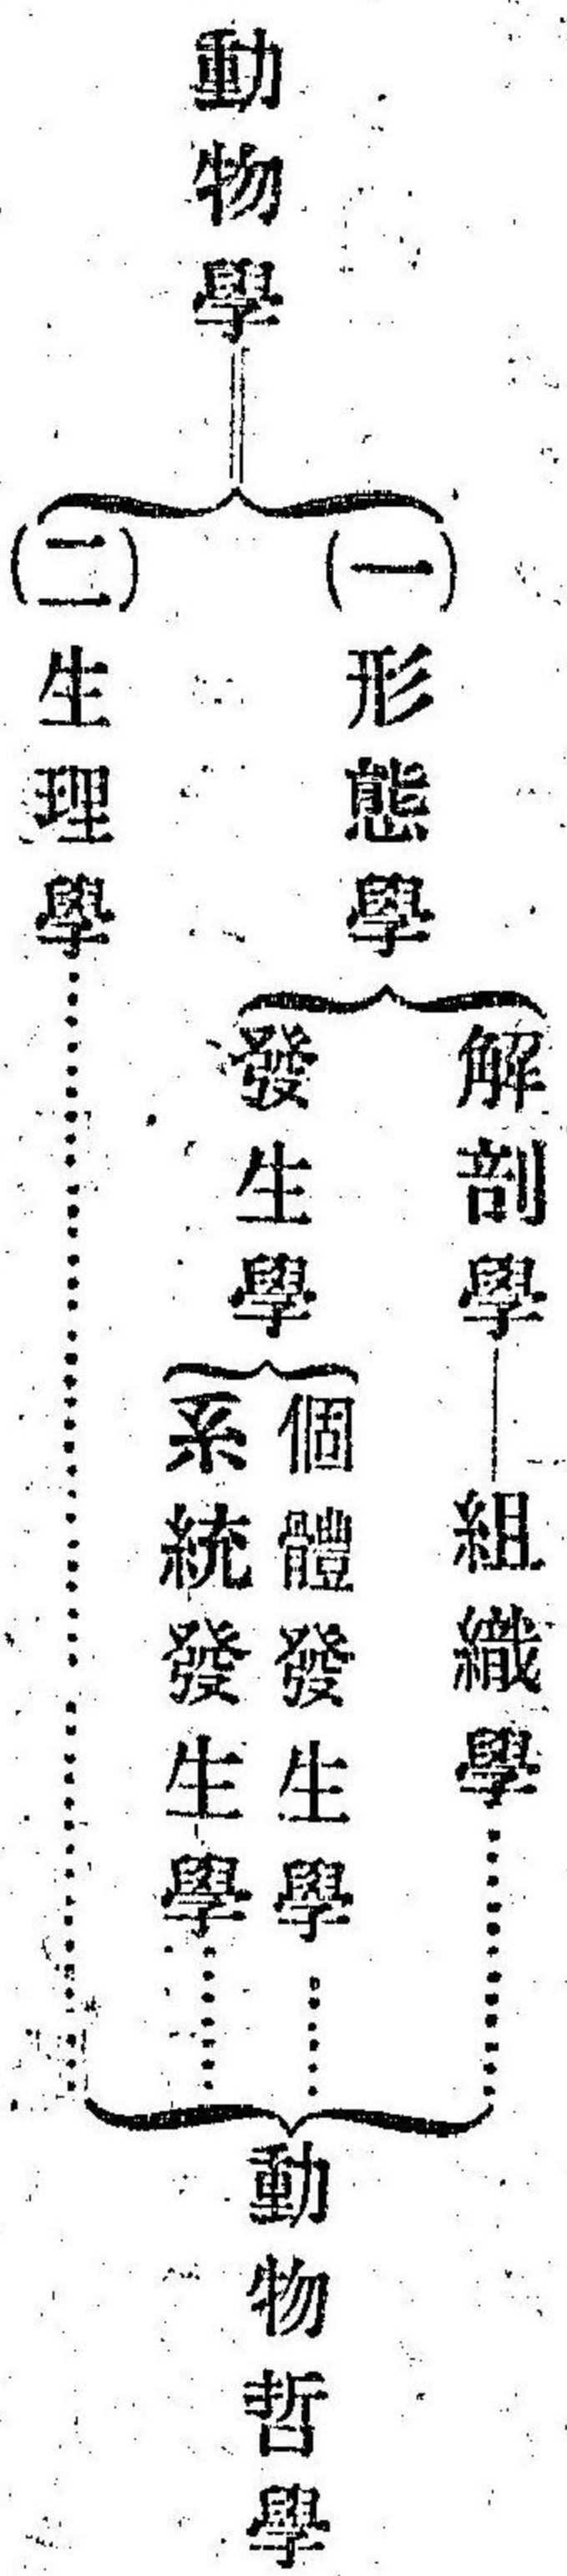 動物學
(一)形態學
解剖學
組織學
發生學
個體發生學
系統發生學
(二)生理學
動物哲學